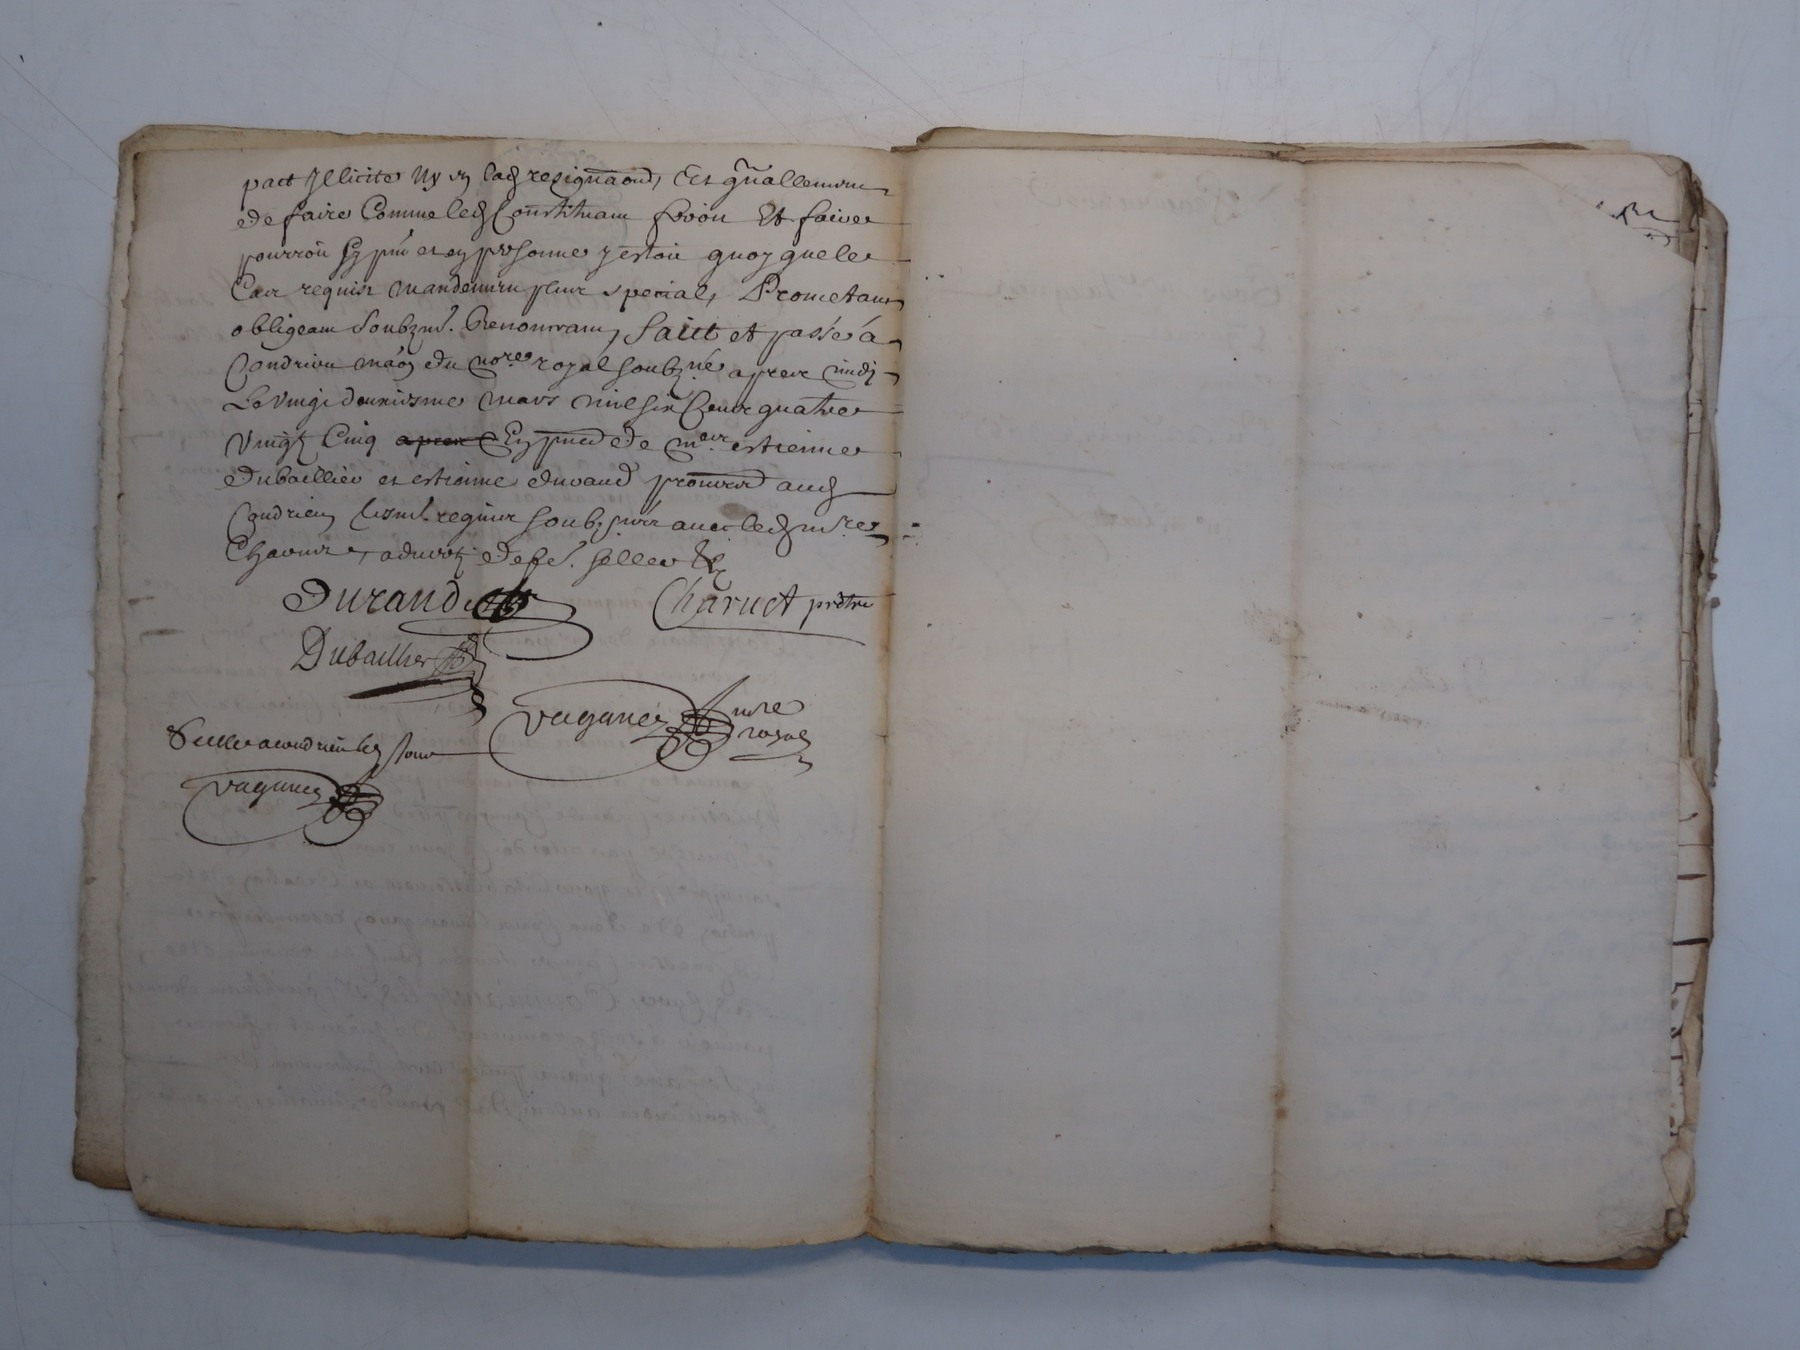 pact Illicite Ny en lad resignaon, Et gnallement
de faire Comme led Constituant feroit Et faire
pourroit sy pnt et en personne y estoit quoy que le
Cas requist mandement plus special, Prometant
obligeant soubzmt. Renonceant, faict et passé a
Condrieu maison du nore royal soubzné apres midy
Le vingt deuxiesme mars mil six Cent quatre
vingt Cinq apres En pnce de mes estienne
Dubaillier et estienne durand praticiens aud
Condrieu tesmt. requis soubzsnés avec led mre
Charuet
Durand
Charuet prêtre
Dubaillier
vaganey nore
royal
Scellé a condrieu led jour
vaganey